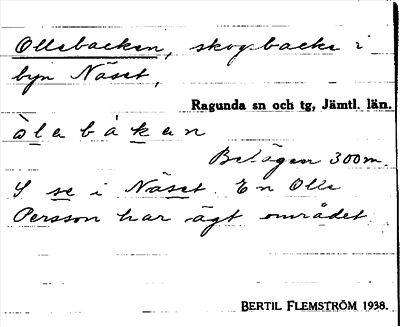 Ollebacken, skogsbacke i
byn Näset,
Ragunda sn och tg, Jämtl. län.
òlebákan
Belägen 300 m.
S se i Näset. En Olle
Persson har ägt området.
BERTIL FLEMSTRÖM 1938.